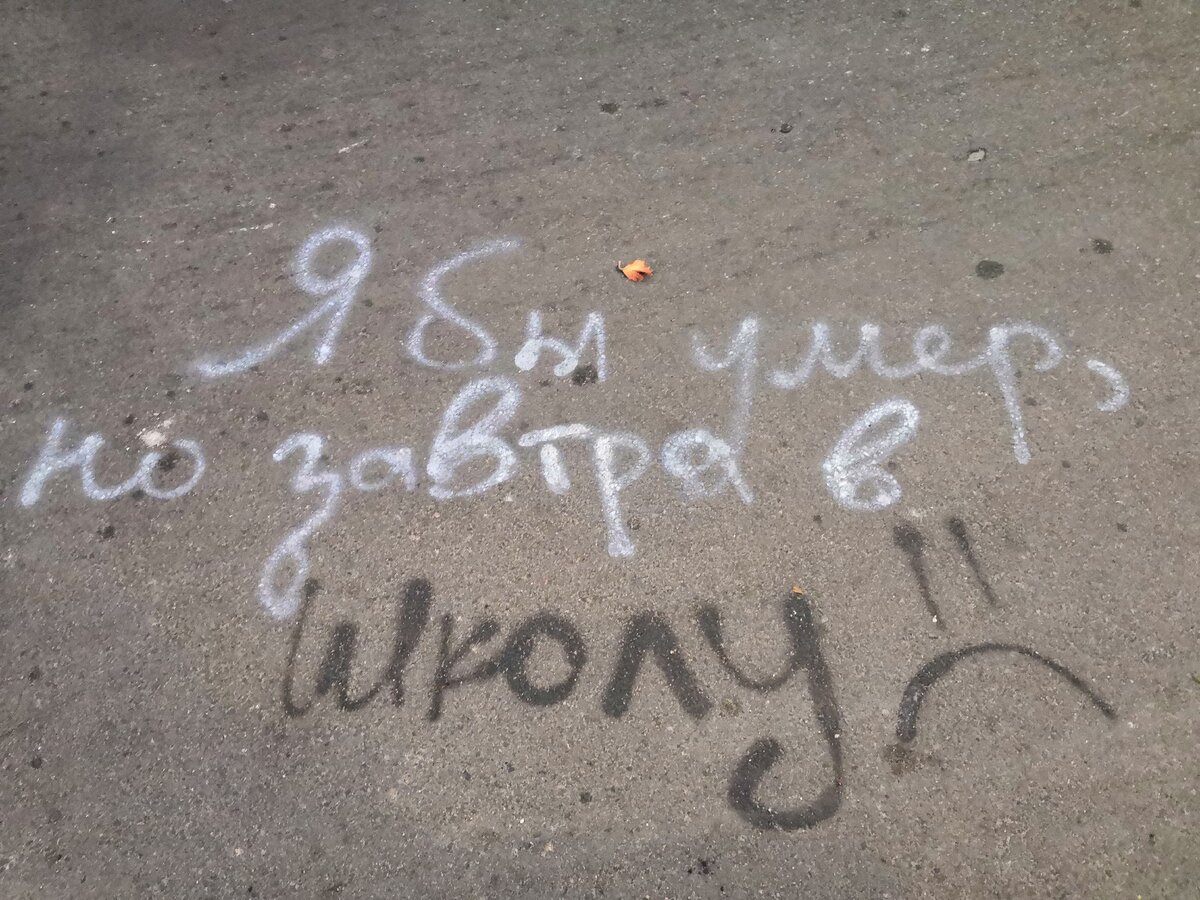 Я бы умер,
но завтра в
школу